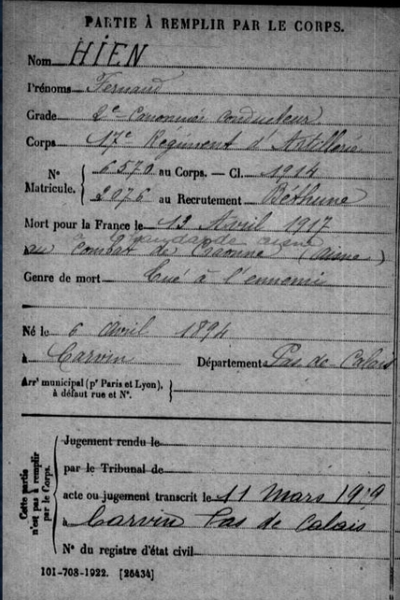 PARTIE À REMPLIR PAR LE CORPS.
Nom HIEN
Prénoms Fernand
Grade 2e Canonnier conducteur
Corps 17e Régiment d'Artillerie
N° Matricule. { 6570 au Corps. — Cl. 1914
2076 au Recrutement Béthune
Mort pour la France le 13 Avril 1917
aisne
au Combat de Craonne (Aisne)
Genre de mort Tué à l'ennemi
Né le 6 avril 1894
à Carvin Département Pas-de-Calais
Arrt municipal (pr Paris et Lyon), à défaut rue et N°. {
Cette partie n'est pas à remplir par le Corps.
Jugement rendu le
par le Tribunal de
acte ou jugement transcrit le 11 Mars 1919
à Carvin Pas de Calais
N° du registre d'état civil
101-708-1922. [26434]